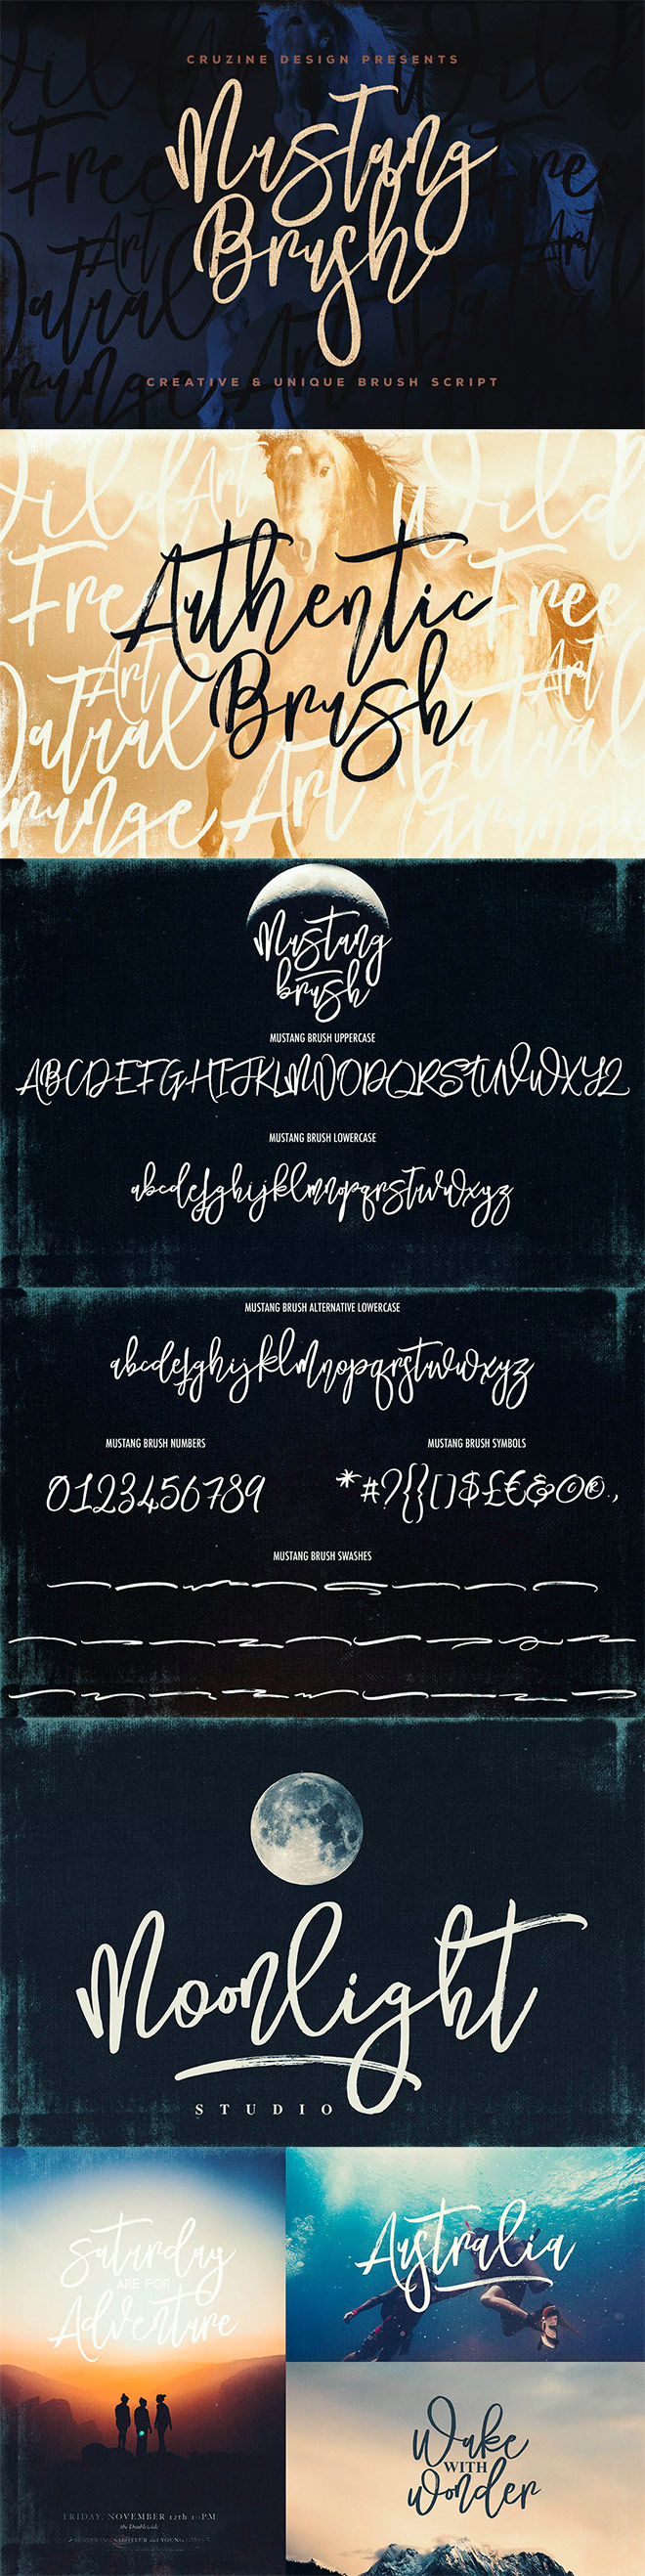 CRUZINE DESIGN PRESENTS
Mustang
Brush
Wild
Wild
Free
Free
Art
Art
CREATIVE & UNIQUE BRUSH SCRIPT
Wild
Art
Wild
Authentic
Free
Free
Brush
Art
Art
Art
Mustang
brush
MUSTANG BRUSH UPPERCASE
ABCDEFGHIJKLMNOPQRSTUVWXYZ
MUSTANG BRUSH LOWERCASE
abcdefghijklmnopqrstuvwxyz
MUSTANG BRUSH ALTERNATIVE LOWERCASE
abcdefghijklmnopqrstuvwxyz
MUSTANG BRUSH NUMBERS
0123456789
MUSTANG BRUSH SYMBOLS
*#?{}[]$£€&©®.,
MUSTANG BRUSH SWASHES
Moonlight
STUDIO
Saturday
ARE FOR
Adventure
FRIDAY, NOVEMBER 12th 10PM
the Doubleside
FEATURING SABOTEUR and YOUNG
Australia
Wake
WITH
wonder